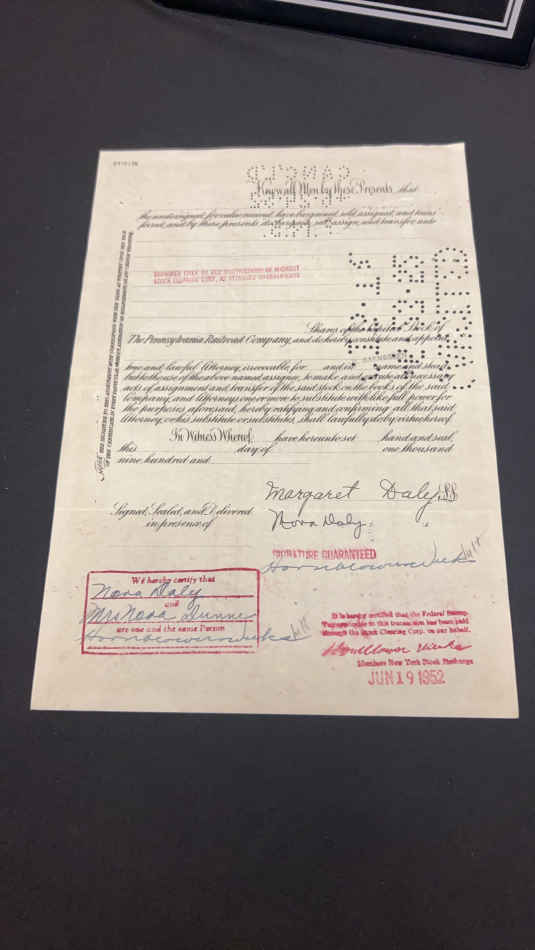 Know all Men by these Presents, that
the undersigned, for value received, have bargained, sold, assigned, and trans
ferred, and by these presents, do bargain, sell, assign, and transfer unto
STOCK CLEARING CORP.
Shares of the Capital Stock of
The Pennsylvania Railroad Company, and do hereby constitute and appoint
true and lawful Attorney, irrevocable for and in name and stead,
but to the use of the above named assignee, to make and execute all necessary
acts of assignment and transfer of the said stock on the books of the said
Company, and Attorneys one or more to substitute with like full power for
the purposes aforesaid, hereby ratifying and confirming all that said
Attorney, or his substitute or substitutes, shall lawfully do by virtue hereof.
In Witness Whereof, have hereunto set hand and seal,
this day of one thousand
nine hundred and
Margaret Daly
Signed, Sealed, and Delivered
in presence of
Nora Daly
SIGNATURE GUARANTEED
Hornblower & Weeks
We hereby certify that
Nora Daly
and
Mrs Nora Dunne
are one and the same Person
Hornblower & Weeks
It is hereby certified that the Federal Stamp
Tax applicable to this transaction has been paid
through the Stock Clearing Corp. on our behalf.
Hornblower & Weeks
Members New York Stock Exchange
JUN 19 1952